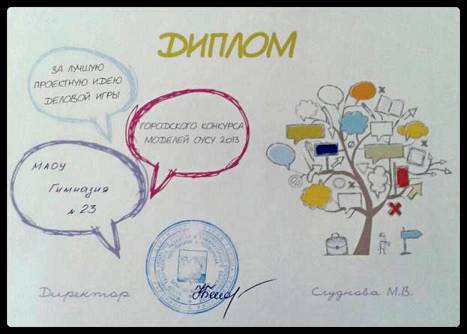 ДИПЛОМ
ЗА ЛУЧШУЮ
ПРОЕКТНУЮ ИДЕЮ
ДЕЛОВОЙ ИГРЫ
ГОРОДСКОГО КОНКУРСА
МОДЕЛЕЙ ОУСУ 2013
МАОУ
Гимназия
№ 23
Директор
Слуднова М.В.